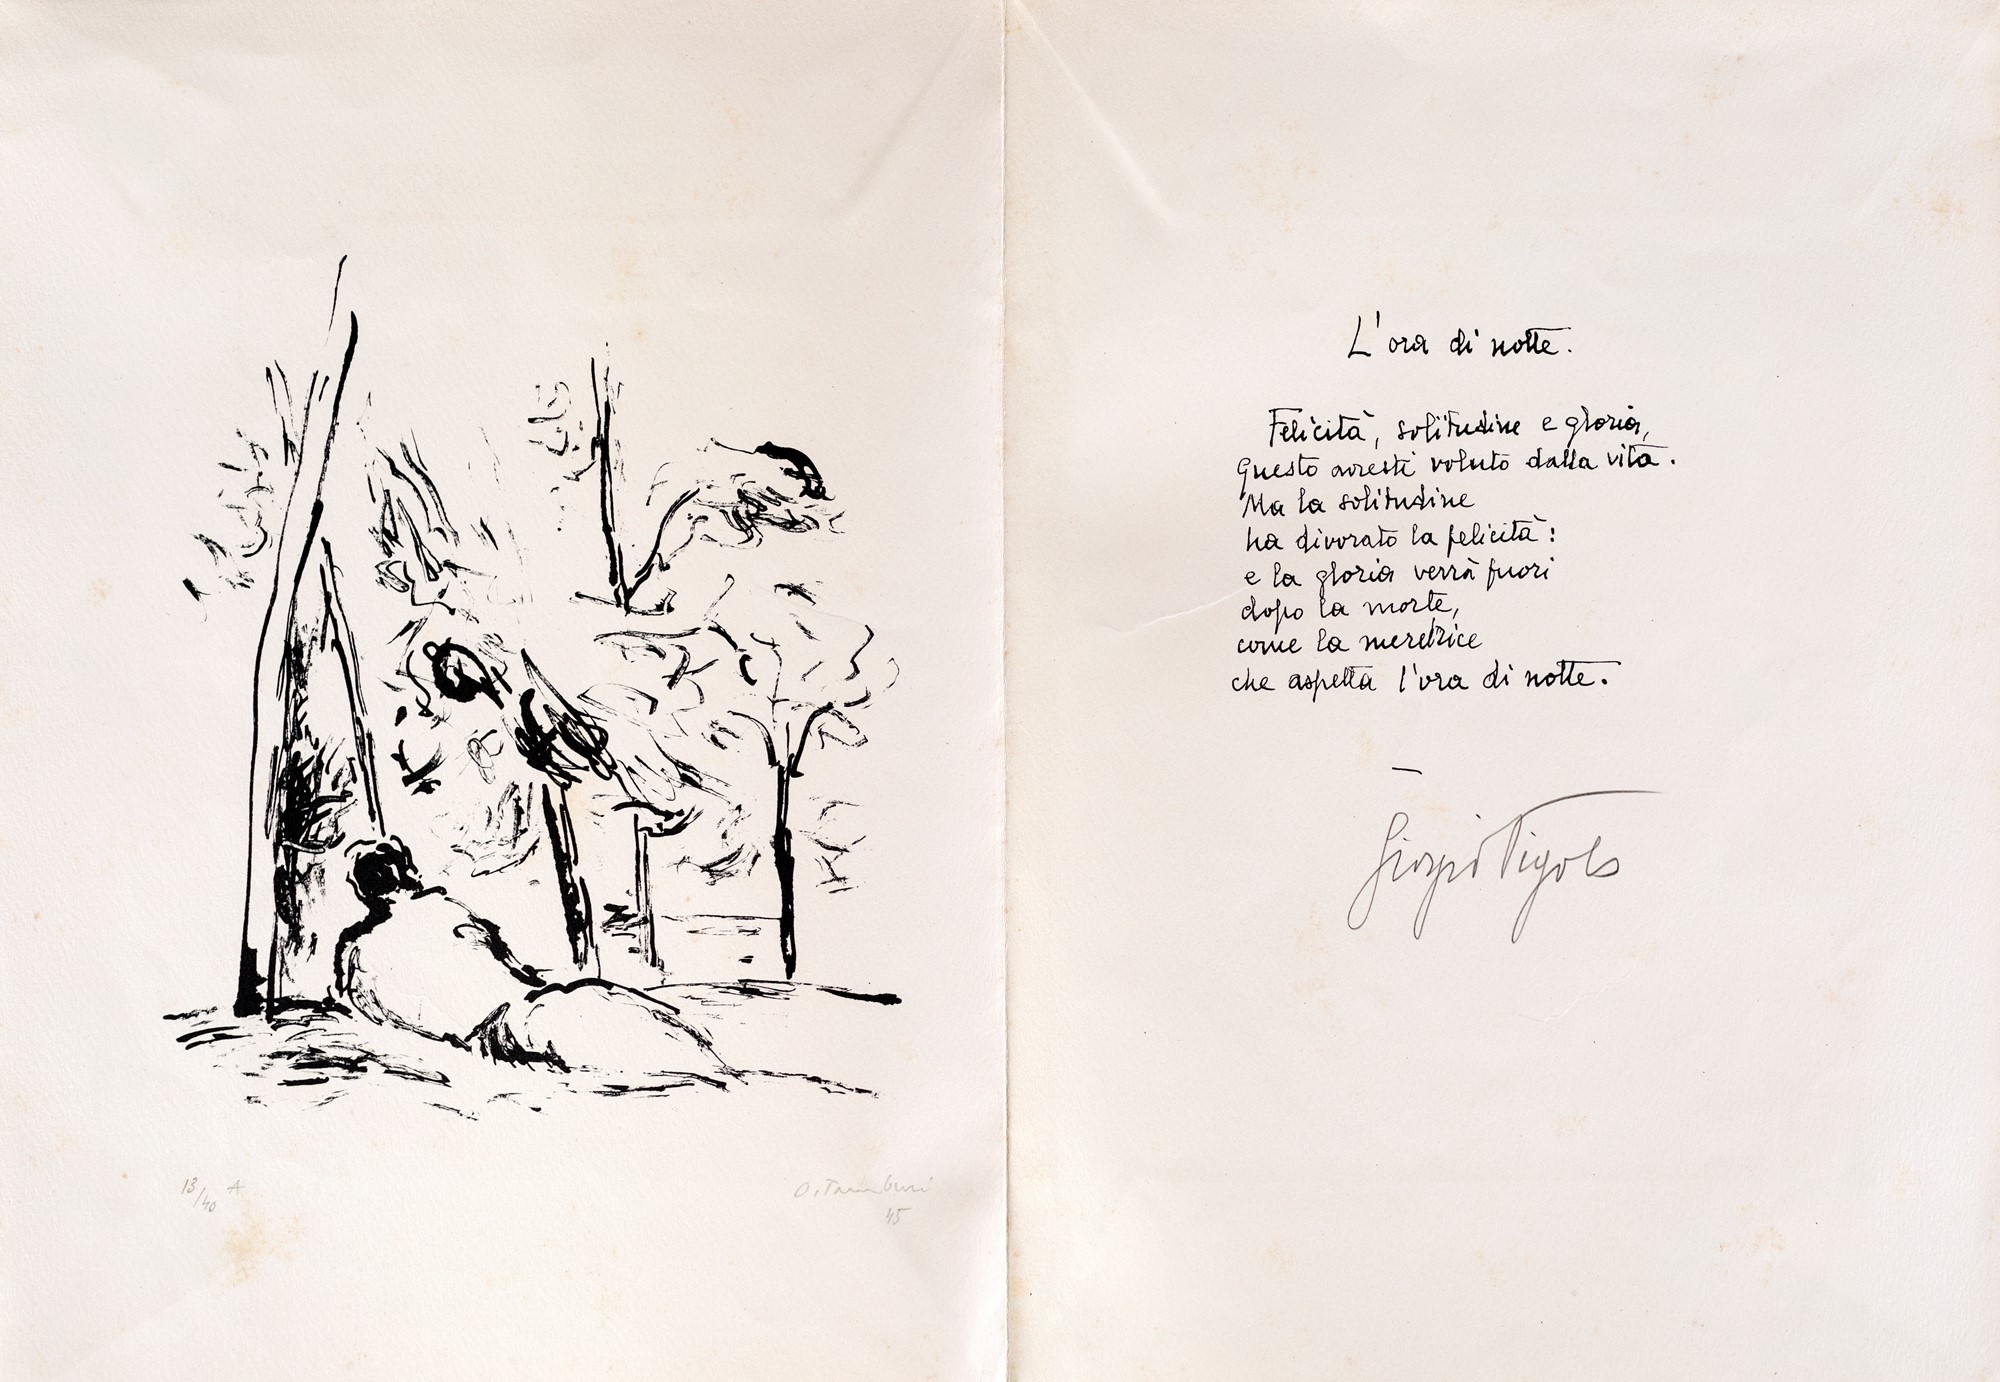 13/40 A
O. Tamburi
45
L'ora di notte.
Felicità, solitudine e gloria,
questo avresti voluto dalla vita.
Ma la solitudine
ha divorato la felicità:
e la gloria verrà fuori
dopo la morte,
come la meretrice
che aspetta l'ora di notte.
Giorgio Vigolo